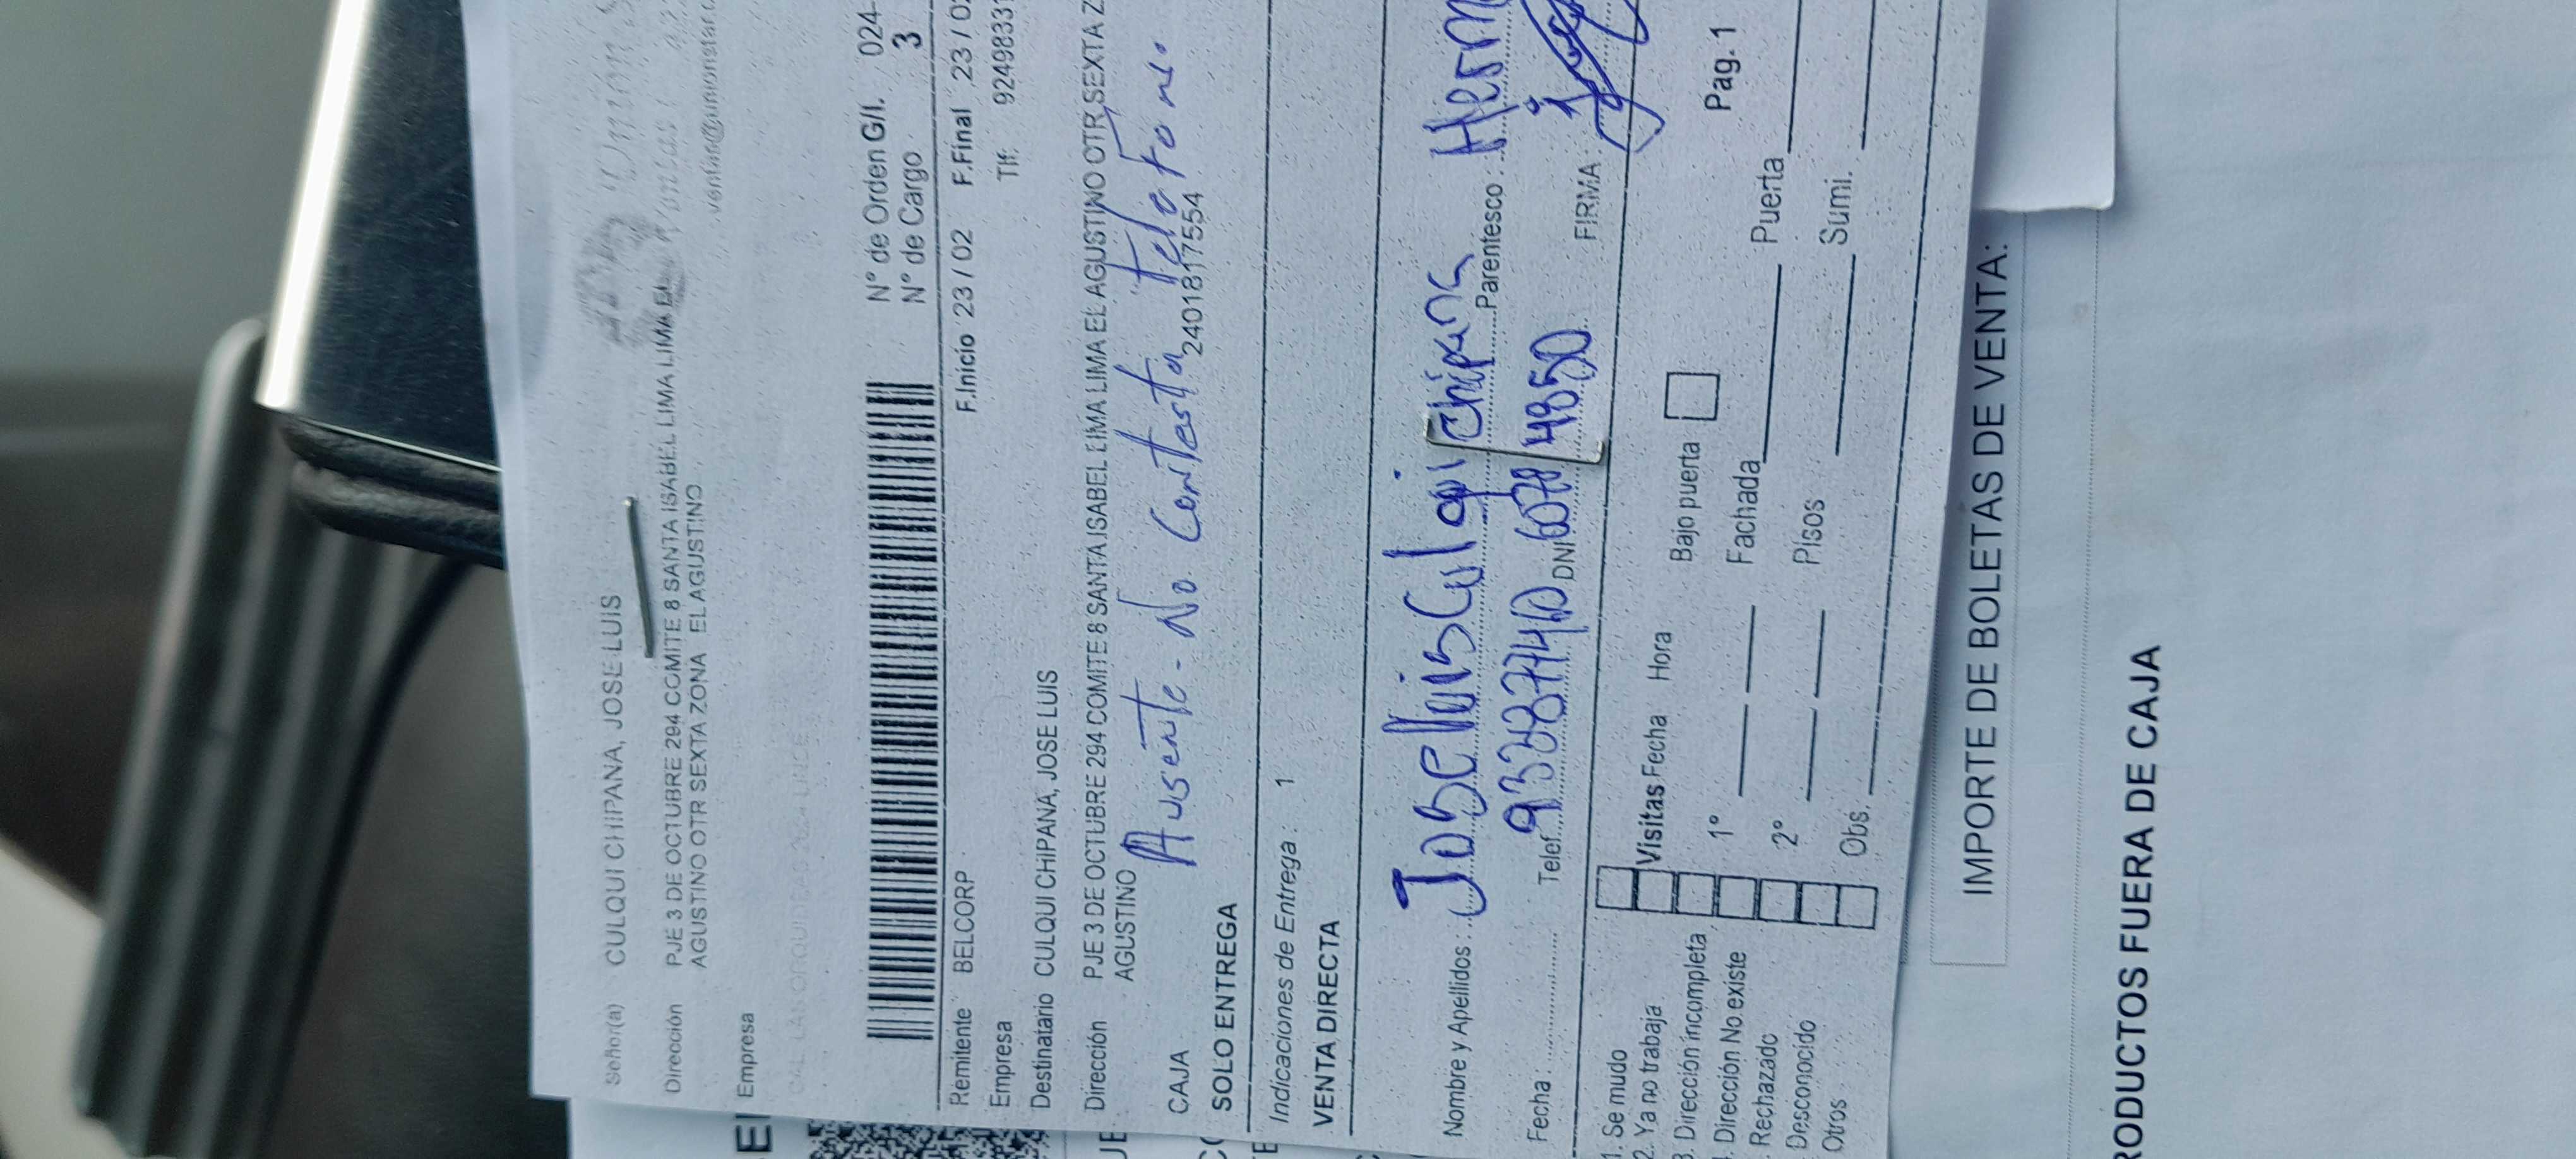 Señor(a) CULQUI CHIPANA, JOSE LUIS
Dirección PJE 3 DE OCTUBRE 294 COMITE 8 SANTA ISABEL LIMA LIMA EL
AGUSTINO OTR SEXTA ZONA EL AGUSTINO
Unión
Ventas
Empresa
N° de Orden G/I. 024-
N° de Cargo 3
Remitente BELCORP F.Inicio 23 / 02 F.Final 23 / 02
Empresa Tlf: 92498331
Destinatario CULQUI CHIPANA, JOSE LUIS
Dirección PJE 3 DE OCTUBRE 294 COMITE 8 SANTA ISABEL LIMA LIMA EL AGUSTINO OTR SEXTA Z
AGUSTINO
Ausente - No Contesta Telefono.
CAJA 2401817554
SOLO ENTREGA
Indicaciones de Entrega : 1
VENTA DIRECTA
Nombre y Apellidos : Jose luis Culqui Chipana Parentesco : Herm
Fecha : Telef. DNI 4850 FIRMA :
1. Se mudo
2. Ya no trabaja Visitas Fecha Hora Bajo puerta Pag. 1
3. Dirección incompleta
. Dirección No existe 1° Fachada Puerta
. Rechazado
Desconocido 2° Pisos Sumi.
Otros Obs.
IMPORTE DE BOLETAS DE VENTA:
RODUCTOS FUERA DE CAJA